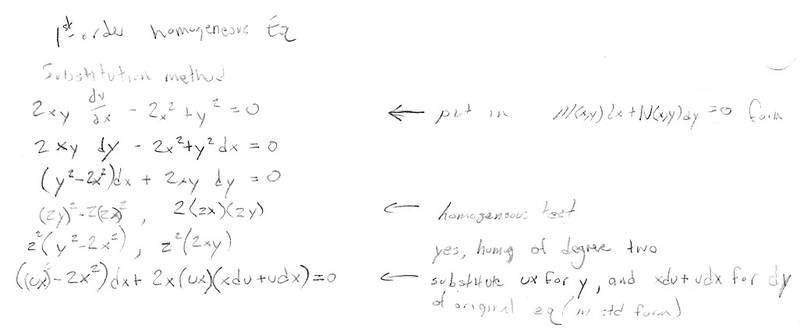 1st order homogeneous Eq
Substitution method
2xy dy/dx - 2x² + y² = 0 ← put in M(x,y)dx + N(x,y)dy = 0 form
2xy dy - 2x² + y² dx = 0
(y² - 2x²)dx + 2xy dy = 0
(zy)² - 2(zx)² , 2(zx)(zy) ← homogenous test
z²(y² - 2x²) , z²(2xy) yes, homog of degree two
((ux)² - 2x²)dx + 2x(ux)(xdu + udx) = 0 ← substitute ux for y, and xdu + udx for dy
of original eq (in std form)